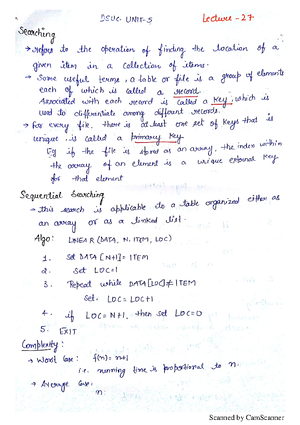 DSUC UNIT-5 Lecture-27
Searching
→ refers to the operation of finding the location of a
given item in a collection of items.
→ Some useful terms, a table or file is a group of elements
each of which is called a record.
Associated with each record is called a key, which is
used to differentiate among different records.
→ For every file, there is at least one set of keys that is
unique is called a primary key.
Eg if the file is stored as an array, the index within
the array of an element is a unique external key
for that element
Sequential Searching
→ this search is applicable to a table organized either as
an array or as a linked list.
Algo: LINEAR (DATA, N, ITEM, LOC)
1. Set DATA [N+1] = ITEM
2. Set LOC=1
3. Repeat while DATA[LOC] ≠ ITEM
Set. LOC = LOC+1
4. if LOC = N+1, then set LOC=0
5. EXIT
Complexity:
→ Worst Case: f(n) = n+1
i.e. running time is proportional to n.
→ Average Case.
n
Scanned by CamScanner